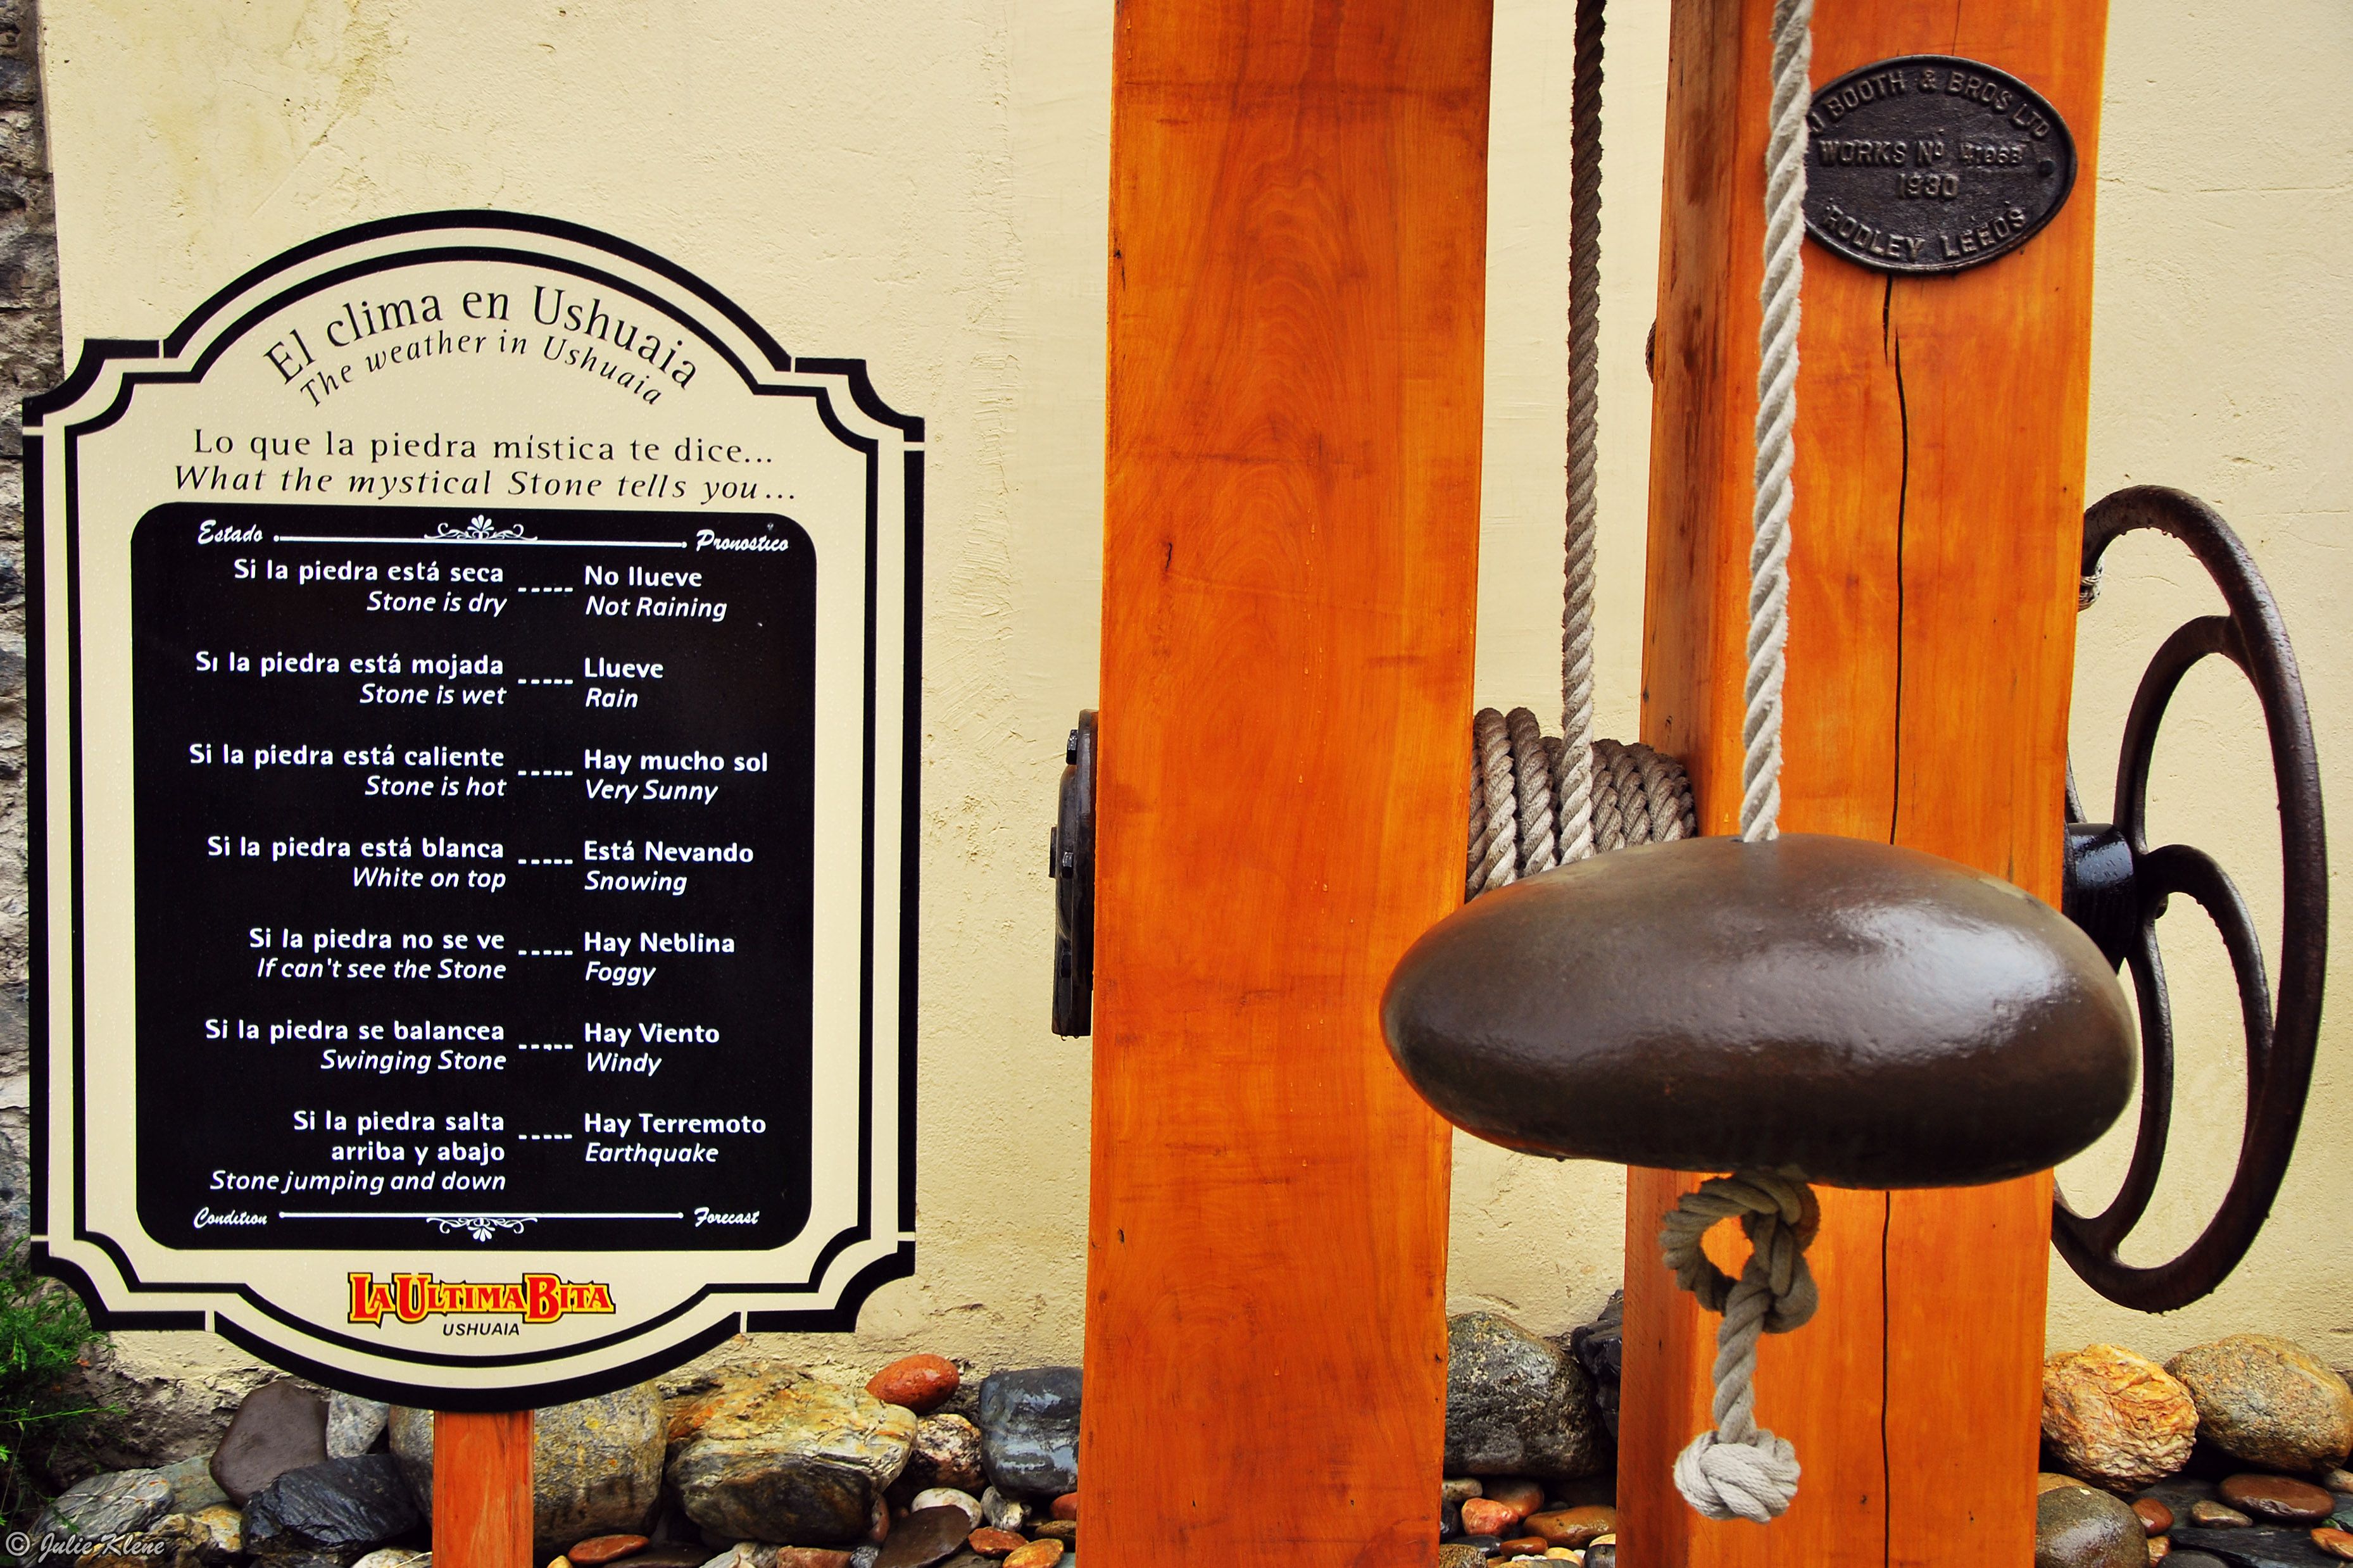 El clima en Ushuaia
The weather in Ushuaia
Lo que la piedra mística te dice...
What the mystical Stone tells you...
Estado Pronostico
Si la piedra está seca ----- No llueve
Stone is dry Not Raining
Si la piedra está mojada ----- Llueve
Stone is wet Rain
Si la piedra está caliente ----- Hay mucho sol
Stone is hot Very Sunny
Si la piedra está blanca ----- Está Nevando
White on top Snowing
Si la piedra no se ve ----- Hay Neblina
If can't see the Stone Foggy
Si la piedra se balancea ----- Hay Viento
Swinging Stone Windy
Si la piedra salta ----- Hay Terremoto
arriba y abajo Earthquake
Stone jumping and down
Condition Forecast
LA ULTIMA BITA
USHUAIA
J BOOTH & BROS LTD
WORKS No
1930
RODLEY LEEDS
© Julie Klene